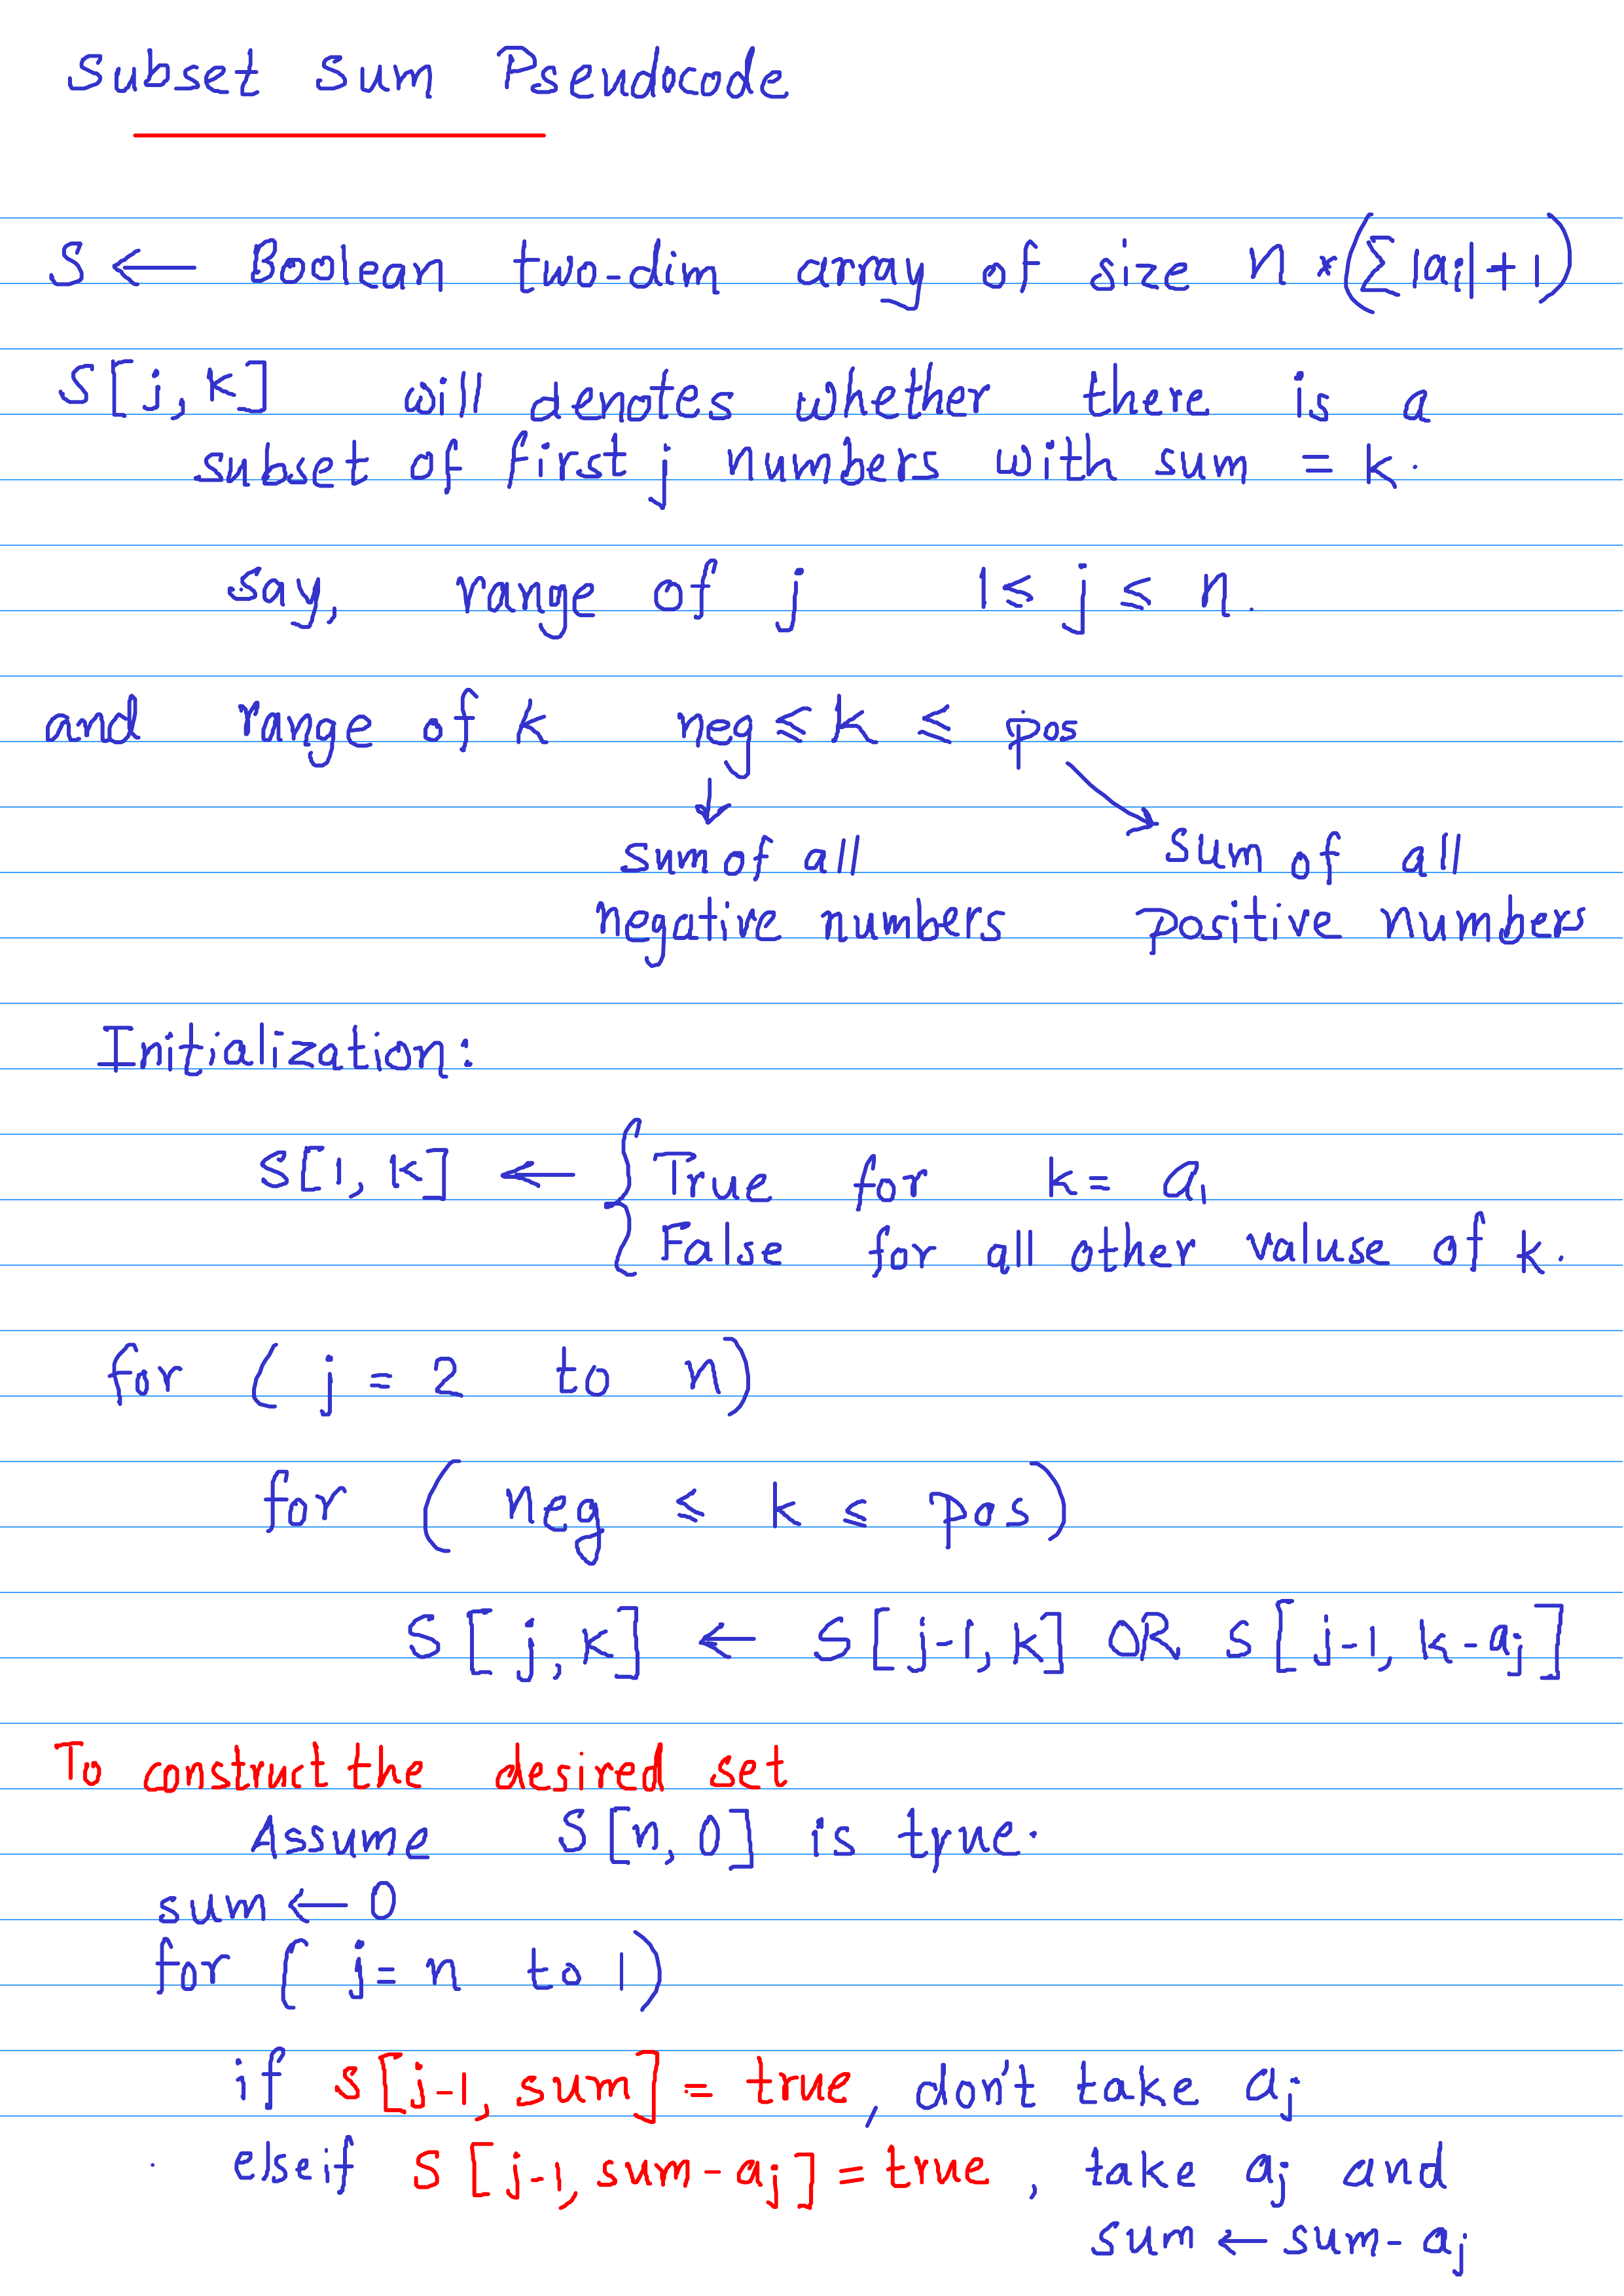 Subset Sum Pseudocode
S ← Boolean two-dim array of size n * (∑|aᵢ|+1)
S[j, k] will denotes whether there is a
subset of first j numbers with sum = k.
say, range of j 1 ≤ j ≤ n.
and range of k neg ≤ k ≤ pos
sum of all
negative numbers
sum of all
positive numbers
Initialization:
S[1, k] ← { True for k = a₁
False for all other valuse of k.
for ( j = 2 to n)
for ( neg ≤ k ≤ pos)
S[j, k] ← S[j-1, k] OR S[j-1, k-aⱼ]
To construct the desired set
Assume S[n, 0] is true.
sum ← 0
for ( j = n to 1)
if S[j-1, sum] = true, don't take aⱼ
elseif S[j-1, sum-aⱼ] = true, take aⱼ and
sum ← sum - aⱼ